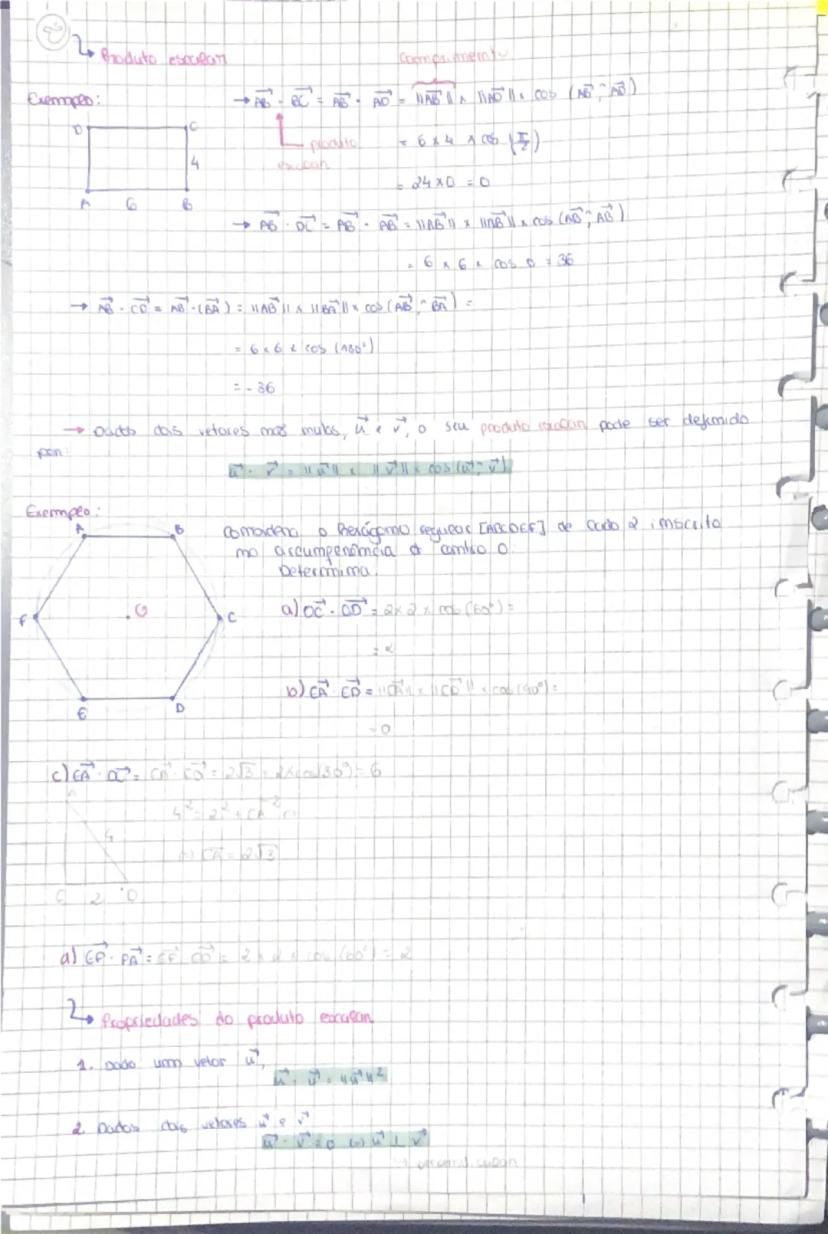 Produto escalar
Comprimento
Exemplo:
→ AB⃗ · BC⃗ = AB⃗ · AD⃗ = ||AB⃗|| × ||AD⃗|| × cos (AB⃗ ^ AD⃗)
D C
produto
escalar
= 6 × 4 × cos (π/2)
4
= 24 × 0 = 0
A 6 B
→ AB⃗ · DC⃗ = AB⃗ · AB⃗ = ||AB⃗|| × ||AB⃗|| × cos (AB⃗ ^ AB⃗)
= 6 × 6 × cos 0 = 36
→ AB⃗ · CD⃗ = AB⃗ · (BA⃗) = ||AB⃗|| × ||BA⃗|| × cos (AB⃗ ^ BA⃗) =
= 6 × 6 × cos (180°)
= - 36
→ Dados dois vetores não nulos, u⃗ e v⃗, o seu produto escalar pode ser definido
por:
u⃗ · v⃗ = ||u⃗|| × ||v⃗|| × cos (u⃗ ^ v⃗)
Exemplo:
A B
Considera o hexágono regular [ABCDEF] de lado 2 inscrito
na circunferência de centro O.
Determina.
F O C
a) OC⃗ · OD⃗ = 2 × 2 × cos (60°) =
= 2
E D
b) EA⃗ · ED⃗ = ||EA⃗|| × ||ED⃗|| × cos (90°) =
= 0
c) EA⃗ · DC⃗ =
= 2√3 × 2 × cos (30°) = 6
4
4² = 2² +
2 D
= 2√3
= 2 × 2 × cos (60°) = 2
Propriedades do produto escalar
1. Dado um vetor u⃗,
u⃗ · u⃗ = ||u⃗||²
2. Dados dois vetores u⃗ e v⃗
u⃗ · v⃗ = 0 (=) u⃗ ⊥ v⃗